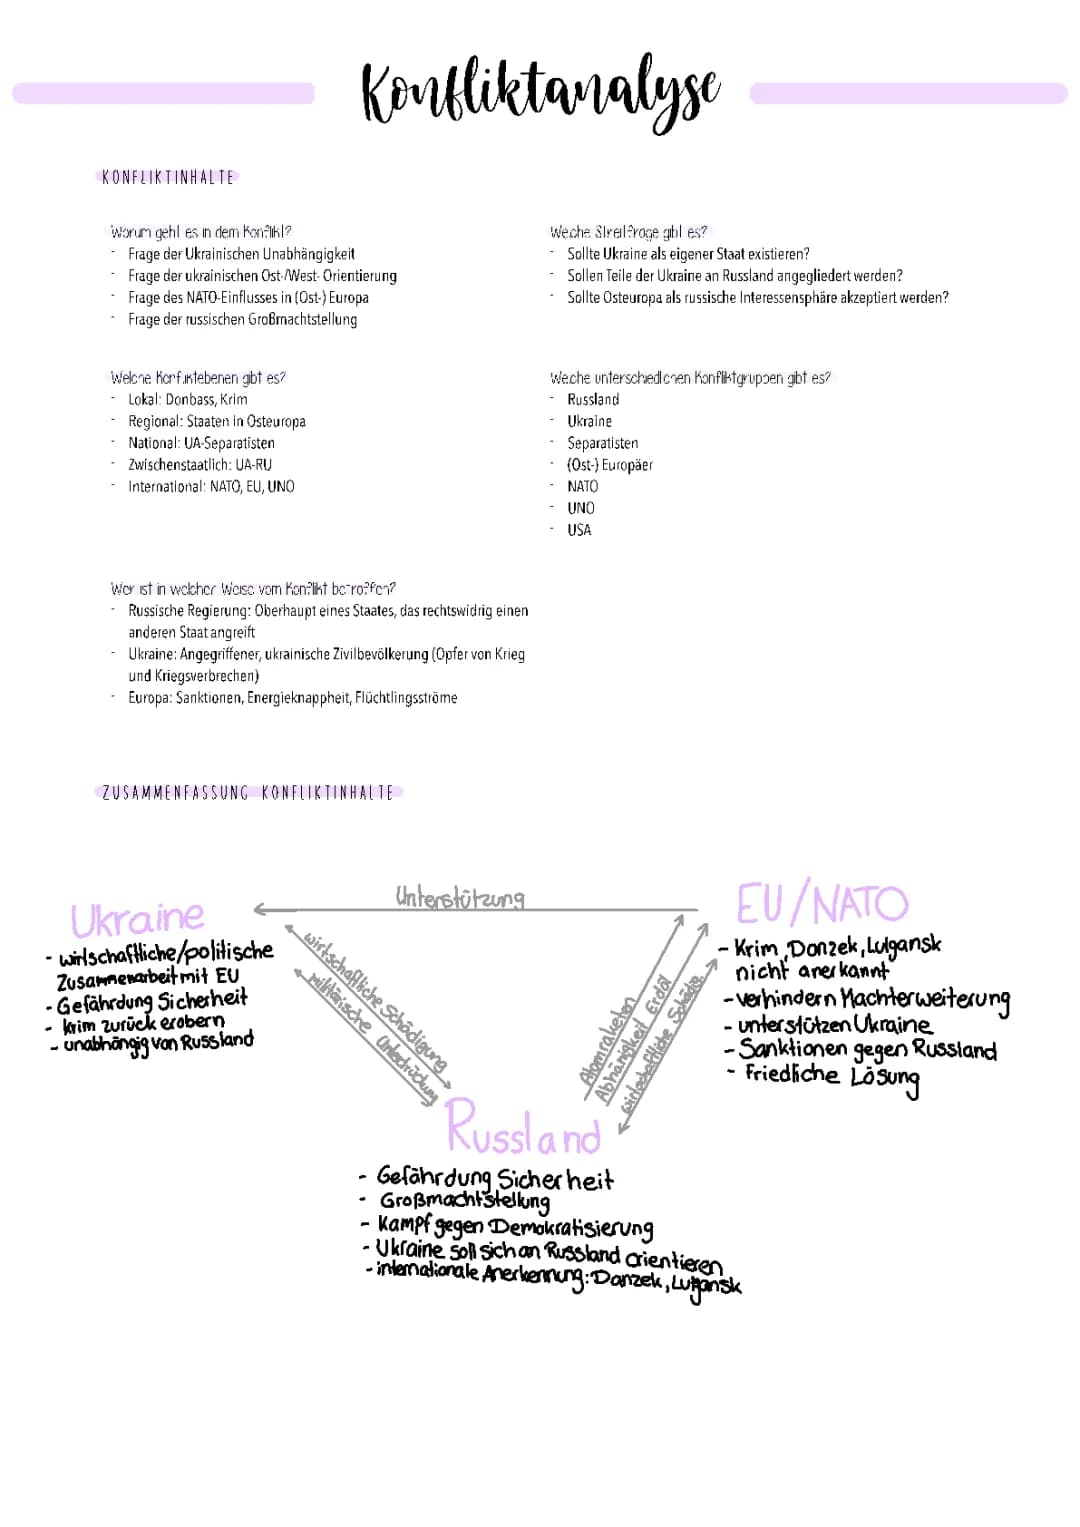 Konfliktanalyse
KONFLIKTINHALTE
Worum geht es in dem Konflikt?
- Frage der Ukrainischen Unabhängigkeit
- Frage der ukrainischen Ost-/West- Orientierung
- Frage des NATO-Einflusses in (Ost-) Europa
- Frage der russischen Großmachtstellung
Welche Streitfrage gibt es?
- Sollte Ukraine als eigener Staat existieren?
- Sollen Teile der Ukraine an Russland angegliedert werden?
- Sollte Osteuropa als russische Interessensphäre akzeptiert werden?
Welche Konfliktebenen gibt es?
- Lokal: Donbass, Krim
- Regional: Staaten in Osteuropa
- National: UA-Separatisten
- Zwischenstaatlich: UA-RU
- International: NATO, EU, UNO
Welche unterschiedlichen Konfliktgruppen gibt es?
- Russland
- Ukraine
- Separatisten
- (Ost-) Europäer
- NATO
- UNO
- USA
Wer ist in welcher Weise vom Konflikt betroffen?
- Russische Regierung: Oberhaupt eines Staates, das rechtswidrig einen
anderen Staat angreift
- Ukraine: Angegriffener, ukrainische Zivilbevölkerung (Opfer von Krieg
und Kriegsverbrechen)
- Europa: Sanktionen, Energieknappheit, Flüchtlingsströme
ZUSAMMENFASSUNG KONFLIKTINHALTE
Ukraine
- wirtschaftliche/politische
Zusammenarbeit mit EU
- Gefährdung Sicherheit
- Krim zurück erobern
- unabhängig von Russland
Unterstützung
wirtschaftliche Schädigung
militärische Unterdrückung
Atomraketen
Abhängigkeit Erdöl
wirtschaftliche Schäde.
EU/NATO
- Krim, Donzek, Lulgansk
nicht anerkannt
- verhindern Machterweiterung
- unterstützen Ukraine
- Sanktionen gegen Russland
- Friedliche Lösung
Russland
- Gefährdung Sicherheit
- Großmachtstellung
- Kampf gegen Demokratisierung
- Ukraine soll sich an Russland orientieren
- internationale Anerkennung: Danzek, Lutgansk